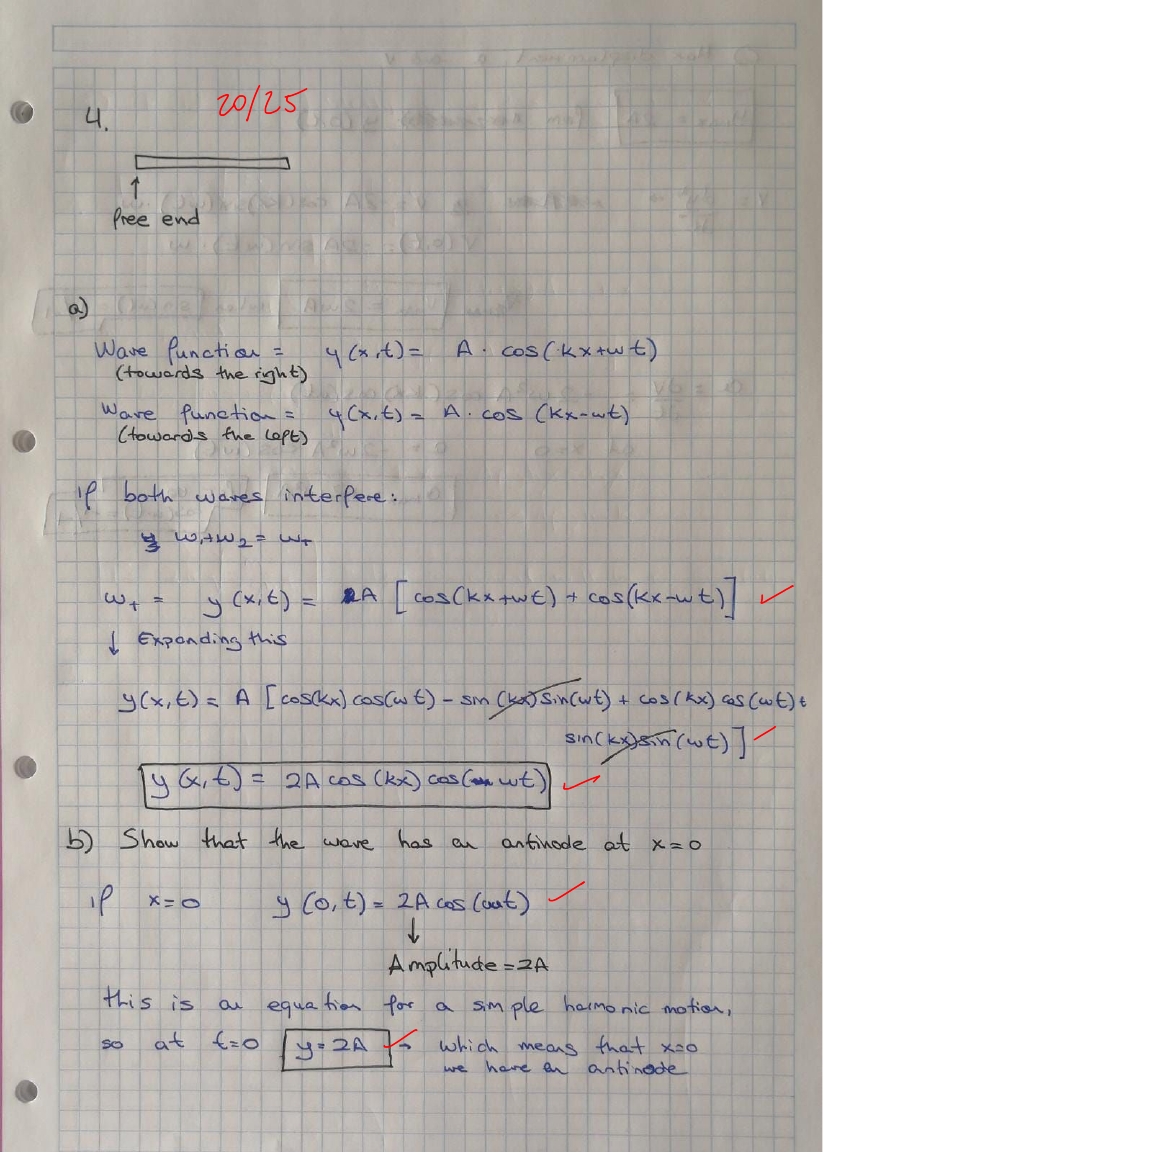 20/25
4.
free end
a)
Wave function = y(x,t) = A · cos(kx+wt)
(towards the right)
Wave function = y(x,t) = A · cos (kx-wt)
(towards the left)
if both waves interfere:
w₁+w₂ = w₊
w₊ = y(x,t) = A [cos(kx+wt) + cos(kx-wt)]
↓ Expanding this
y(x,t) = A [cos(kx) cos(wt) - sin(kx) sin(wt) + cos(kx) cos(wt) +
sin(kx) sin(wt)]
y(x,t) = 2A cos(kx) cos(wt)
b) Show that the wave has an antinode at x=0
if x=0 y(0,t) = 2A cos(wt)
↓
Amplitude = 2A
this is an equation for a simple harmonic motion,
so at t=0 y=2A → which means that x=0
we have an antinode